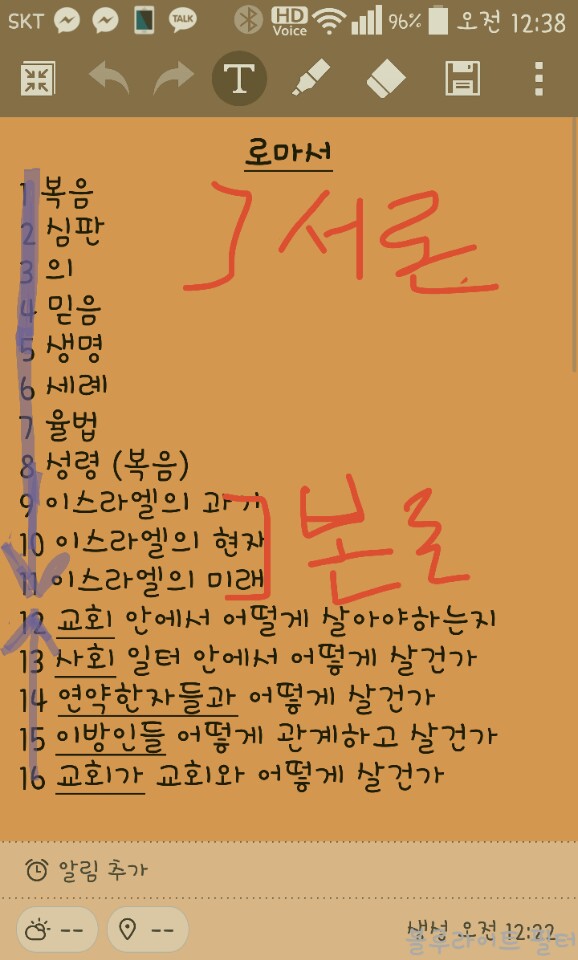 SKT TALK HD Voice 96% 오전 12:38
T
로마서
1 복음
2 심판
3 의
서론
4 믿음
5 생명
6 세례
7 율법
8 성령 (복음)
9 이스라엘의 과거
10 이스라엘의 현재
본론
11 이스라엘의 미래
12 교회 안에서 어떨게 살아야하는지
13 사회 일터 안에서 어떻게 살건가
14 연약한자들과 어떻게 살건가
15 이방인들 어떻게 관계하고 살건가
16 교회가 교회와 어떻게 살건가
알림 추가
-- -- 생성 오전 12:22
블루라이트 필터